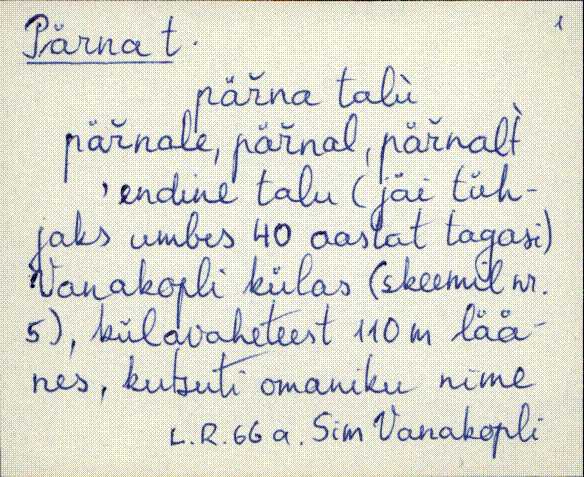 1
Pärna t.
pär̆na talù
pär̆nale, pär̆nal, pär̆nalt̀
, endine talu (jäi tüh-
jaks umbes 40 aastat tagasi)
Vanakopli külas (skeemil nr.
5), külavaheteest 110 m lää-
nes, kutsuti omaniku nime
L.R. 66 a. Sim Vanakopli